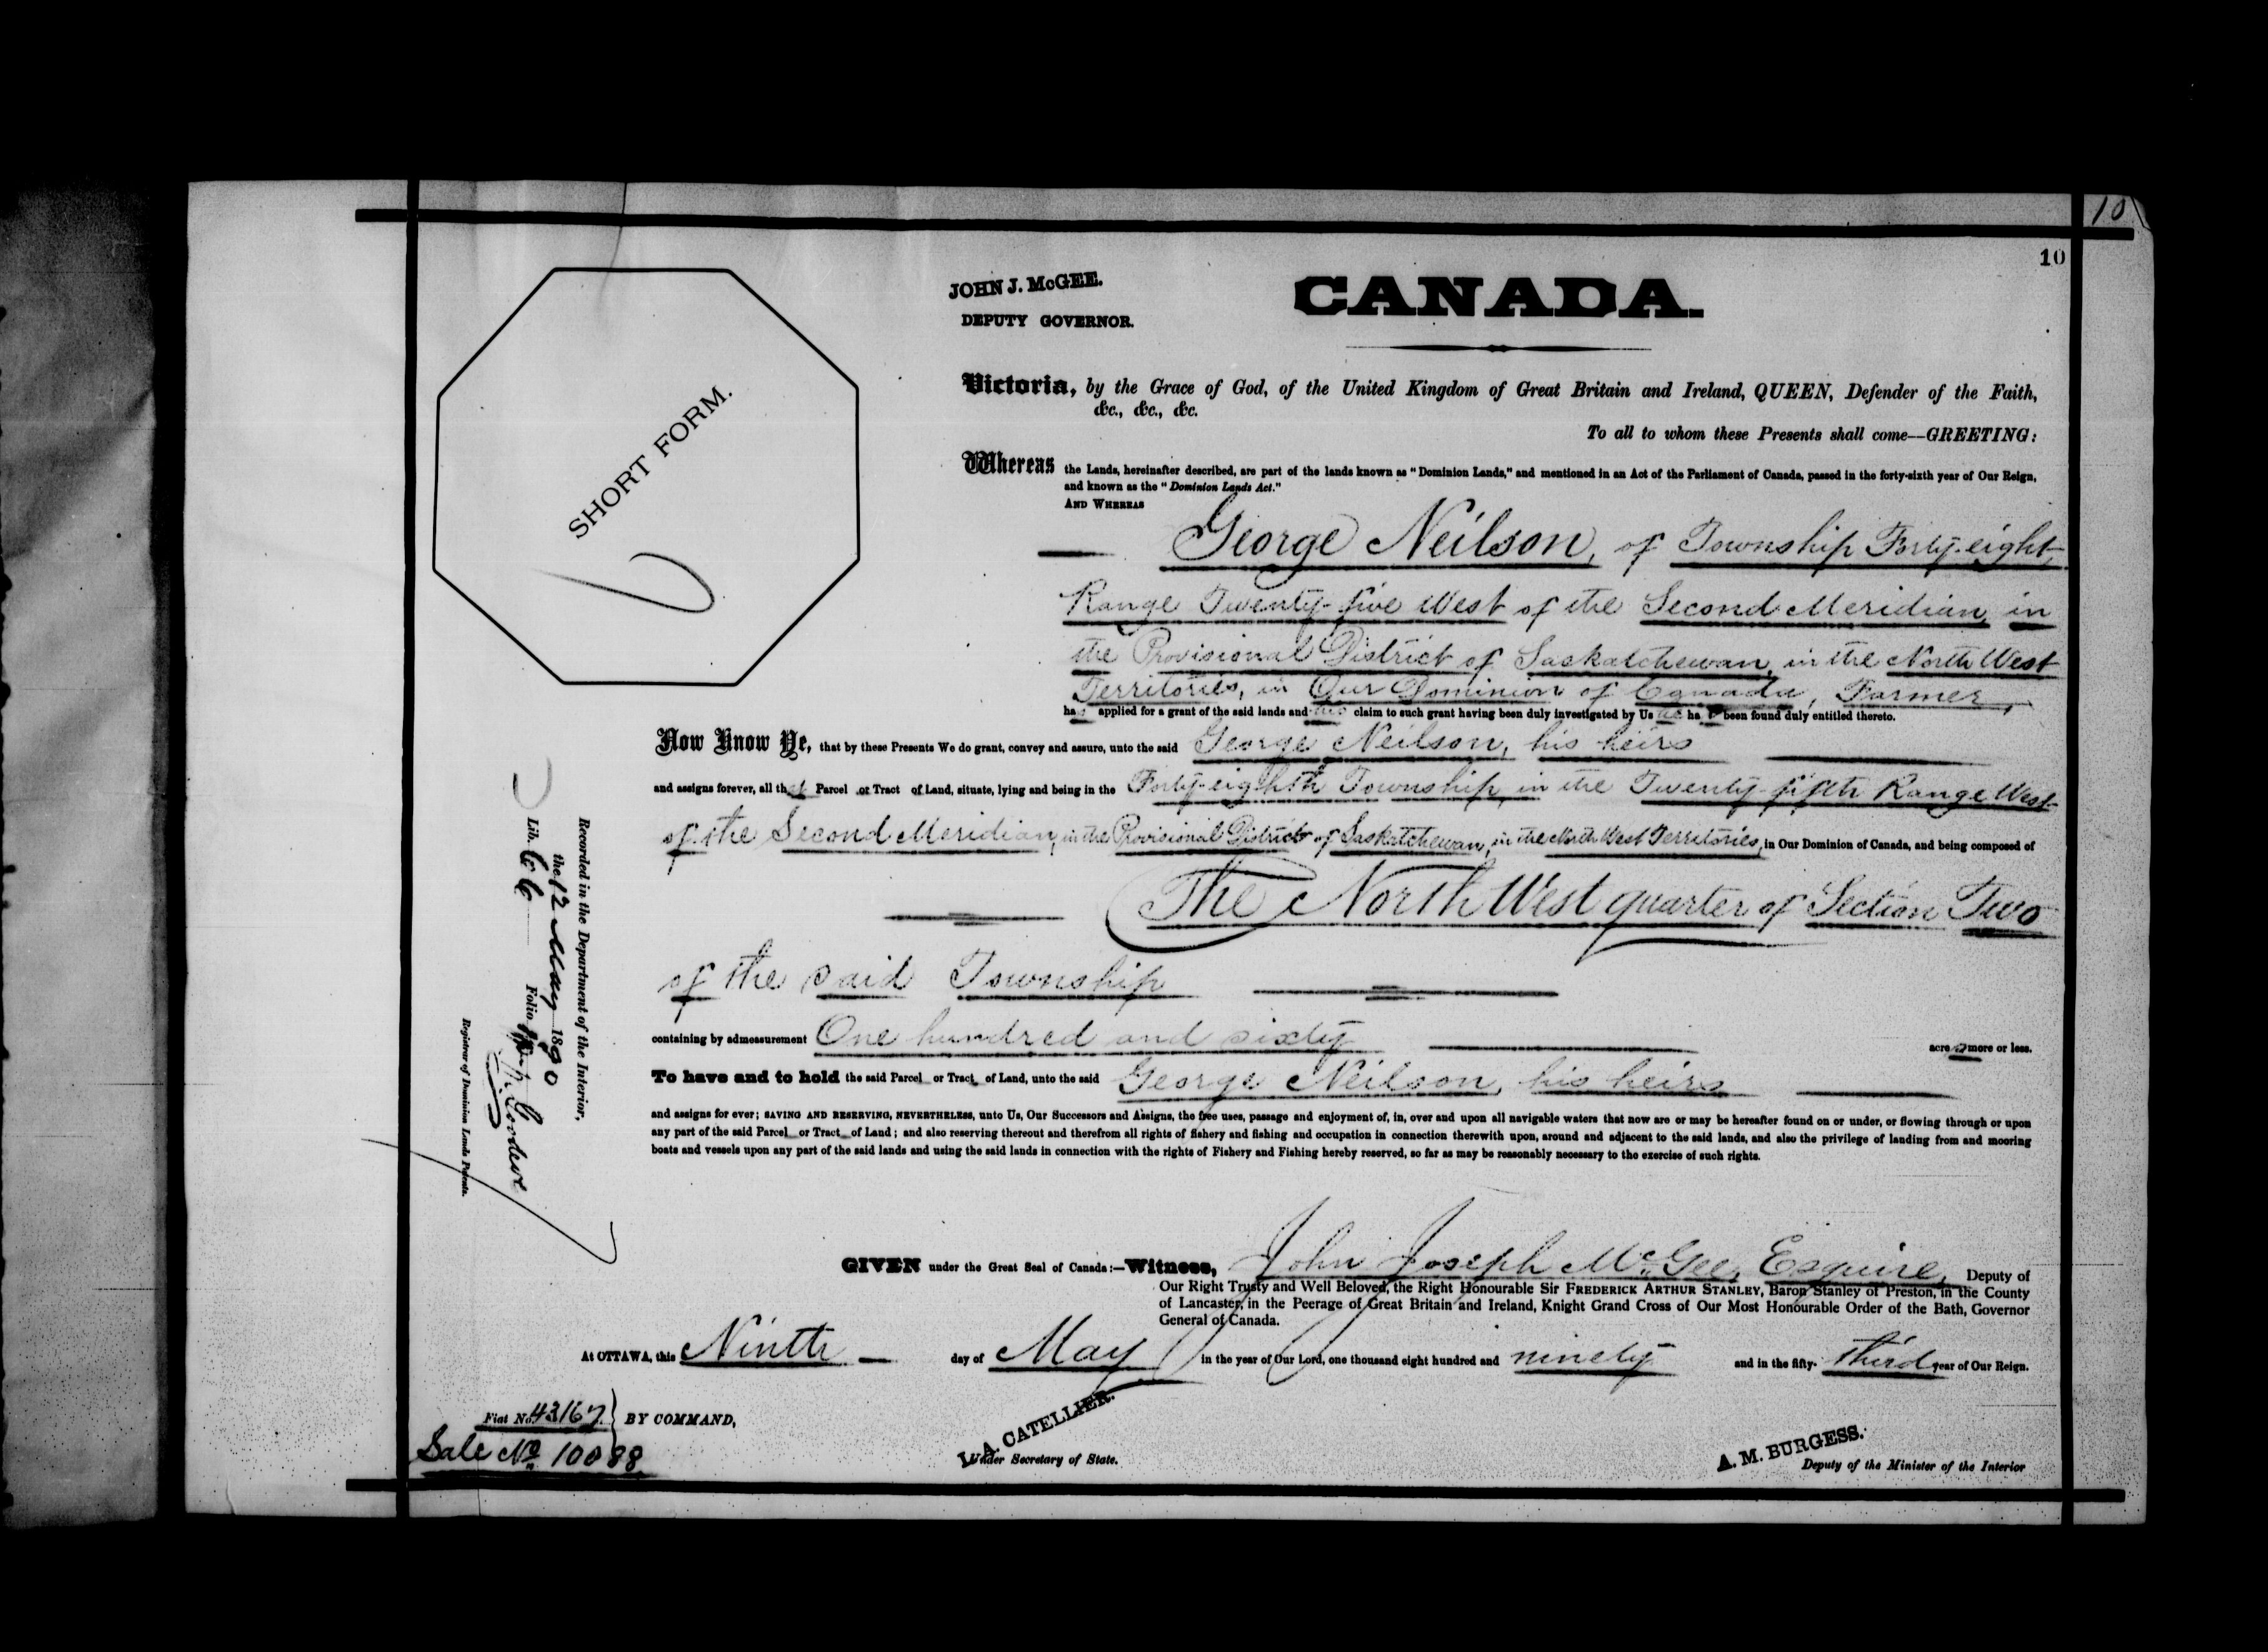 10
10
JOHN J. McGEE.
DEPUTY GOVERNOR.
CANADA.
SHORT FORM.
Victoria, by the Grace of God, of the United Kingdom of Great Britain and Ireland, QUEEN, Defender of the Faith,
&c., &c., &c.
To all to whom these Presents shall come—GREETING:
Whereas the Lands, hereinafter described, are part of the lands known as "Dominion Lands," and mentioned in an Act of the Parliament of Canada, passed in the forty-sixth year of Our Reign,
and known as the "Dominion Lands Act."
AND WHEREAS
George Neilson, of Township Forty-eight,
Range Twenty-five West of the Second Meridian, in
the Provisional District of Saskatchewan, in the North West
Territories, in Our Dominion of Canada, Farmer,
has applied for a grant of the said lands and his claim to such grant having been duly investigated by Us he has been found duly entitled thereto.
Now Know Ye, that by these Presents We do grant, convey and assure, unto the said George Neilson, his heirs
and assigns forever, all that Parcel or Tract of Land, situate, lying and being in the Forty-eighth Township, in the Twenty-fifth Range West
of the Second Meridian, in the Provisional District of Saskatchewan, in the North West Territories, in Our Dominion of Canada, and being composed of
The North West quarter of Section Two
of the said Township
containing by admeasurement One hundred and sixty acres more or less.
To have and to hold the said Parcel or Tract of Land, unto the said George Neilson, his heirs
and assigns for ever; SAVING AND RESERVING, NEVERTHELESS, unto Us, Our Successors and Assigns, the free uses, passage and enjoyment of, in, over and upon all navigable waters that now are or may be hereafter found on or under, or flowing through or upon
any part of the said Parcel or Tract of Land; and also reserving thereout and therefrom all rights of fishery and fishing and occupation in connection therewith upon, around and adjacent to the said lands, and also the privilege of landing from and mooring
boats and vessels upon any part of the said lands and using the said lands in connection with the rights of Fishery and Fishing hereby reserved, so far as may be reasonably necessary to the exercise of such rights.
GIVEN under the Great Seal of Canada:—Witness, John Joseph McGee, Esquire, Deputy of
Our Right Trusty and Well Beloved, the Right Honourable Sir FREDERICK ARTHUR STANLEY, Baron Stanley of Preston, in the County
of Lancaster, in the Peerage of Great Britain and Ireland, Knight Grand Cross of Our Most Honourable Order of the Bath, Governor
General of Canada.
At OTTAWA, this Ninth day of May in the year of Our Lord, one thousand eight hundred and ninety and in the fifty-third year of Our Reign.
Fiat No. 43167. BY COMMAND,
Sale No 10088
L. A. CATELLIER.
Under Secretary of State.
A. M. BURGESS.
Deputy of the Minister of the Interior
Recorded in the Department of the Interior,
the 12 May 1890
Lib. Folio
Registrar of Dominion Lands Patents.